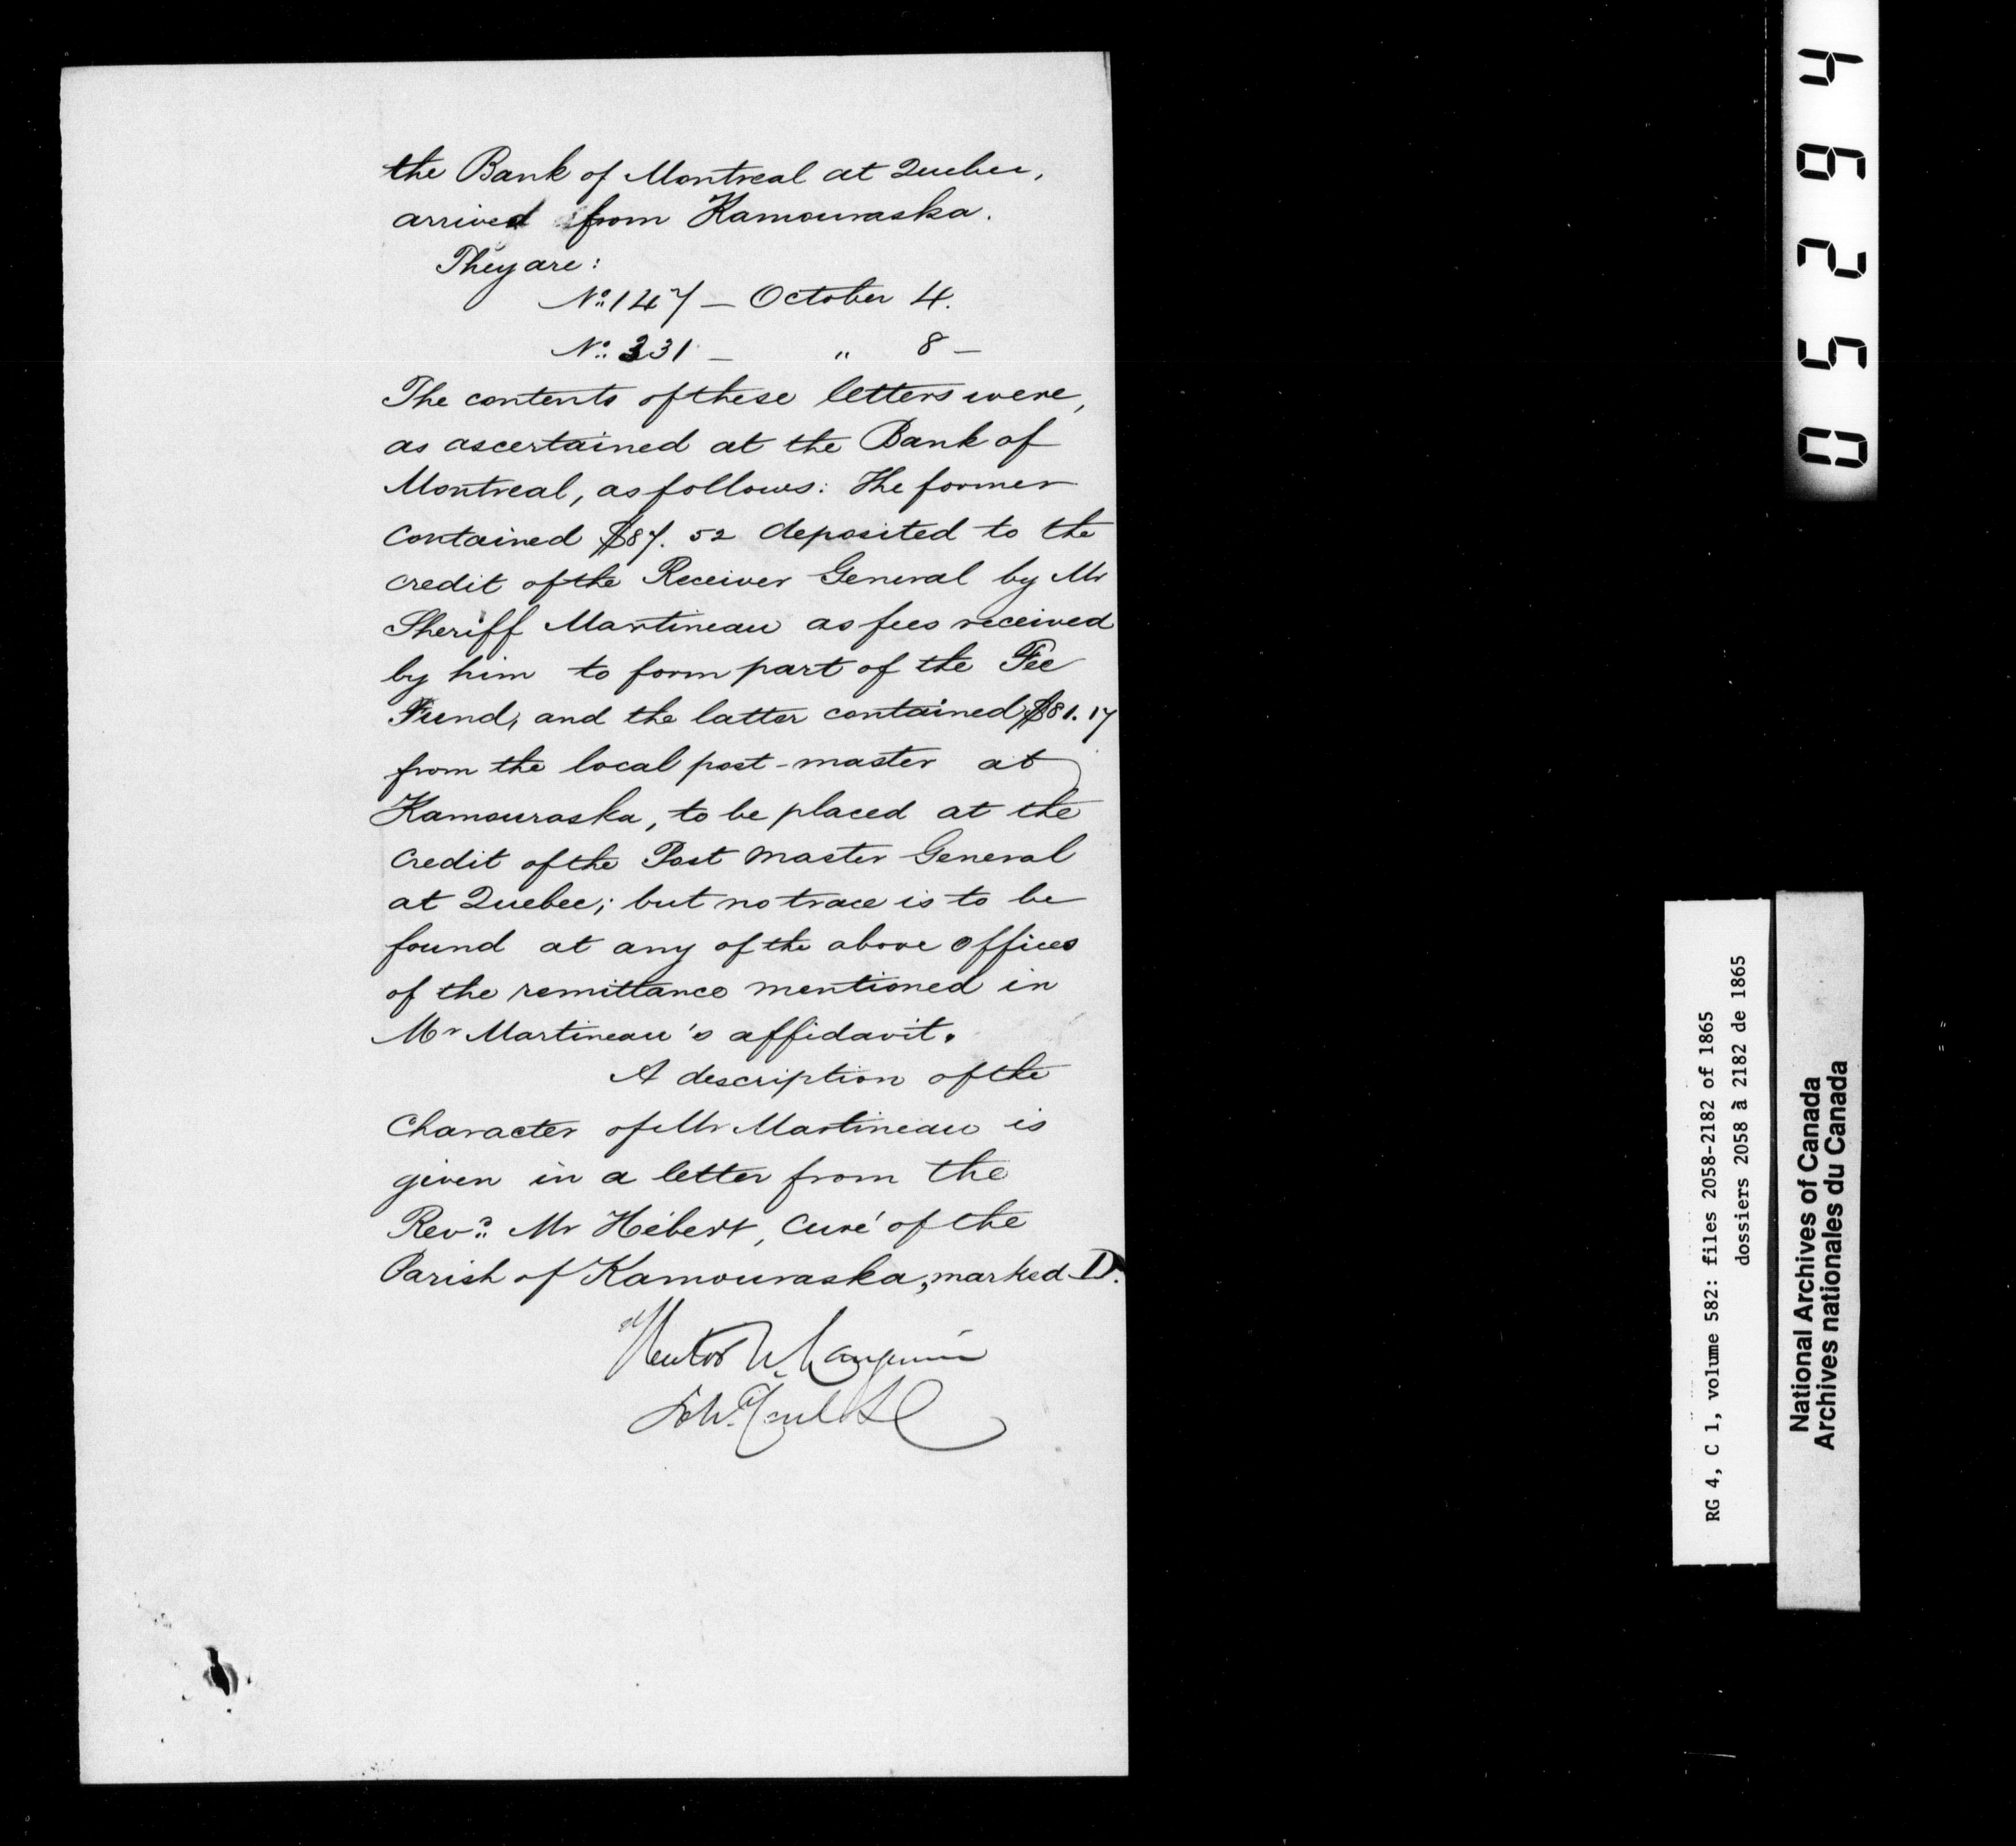 the Bank of Montreal at Quebec,
arrived from Kamouraska.
They are:
No. 147 — October 4.
No. 331 — " 8 —
The contents of these letters were,
as ascertained at the Bank of
Montreal, as follows: The former
contained $87.52 deposited to the
credit of the Receiver General by Mr
Sheriff Martineau as fees received
by him to form part of the Fee
Fund, and the latter contained $81.17
from the local post-master at
Kamouraska, to be placed at the
credit of the Post Master General
at Quebec; but no trace is to be
found at any of the above offices
of the remittance mentioned in
Mr Martineau's affidavit.
A description of the
Character of Mr Martineau is
given in a letter from the
Revd. Mr Hébert, Curé of the
Parish of Kamouraska, marked D.
Hector L. Langevin
05294
RG 4, C 1, volume 582: files 2058-2182 of 1865
dossiers 2058 à 2182 de 1865
National Archives of Canada
Archives nationales du Canada